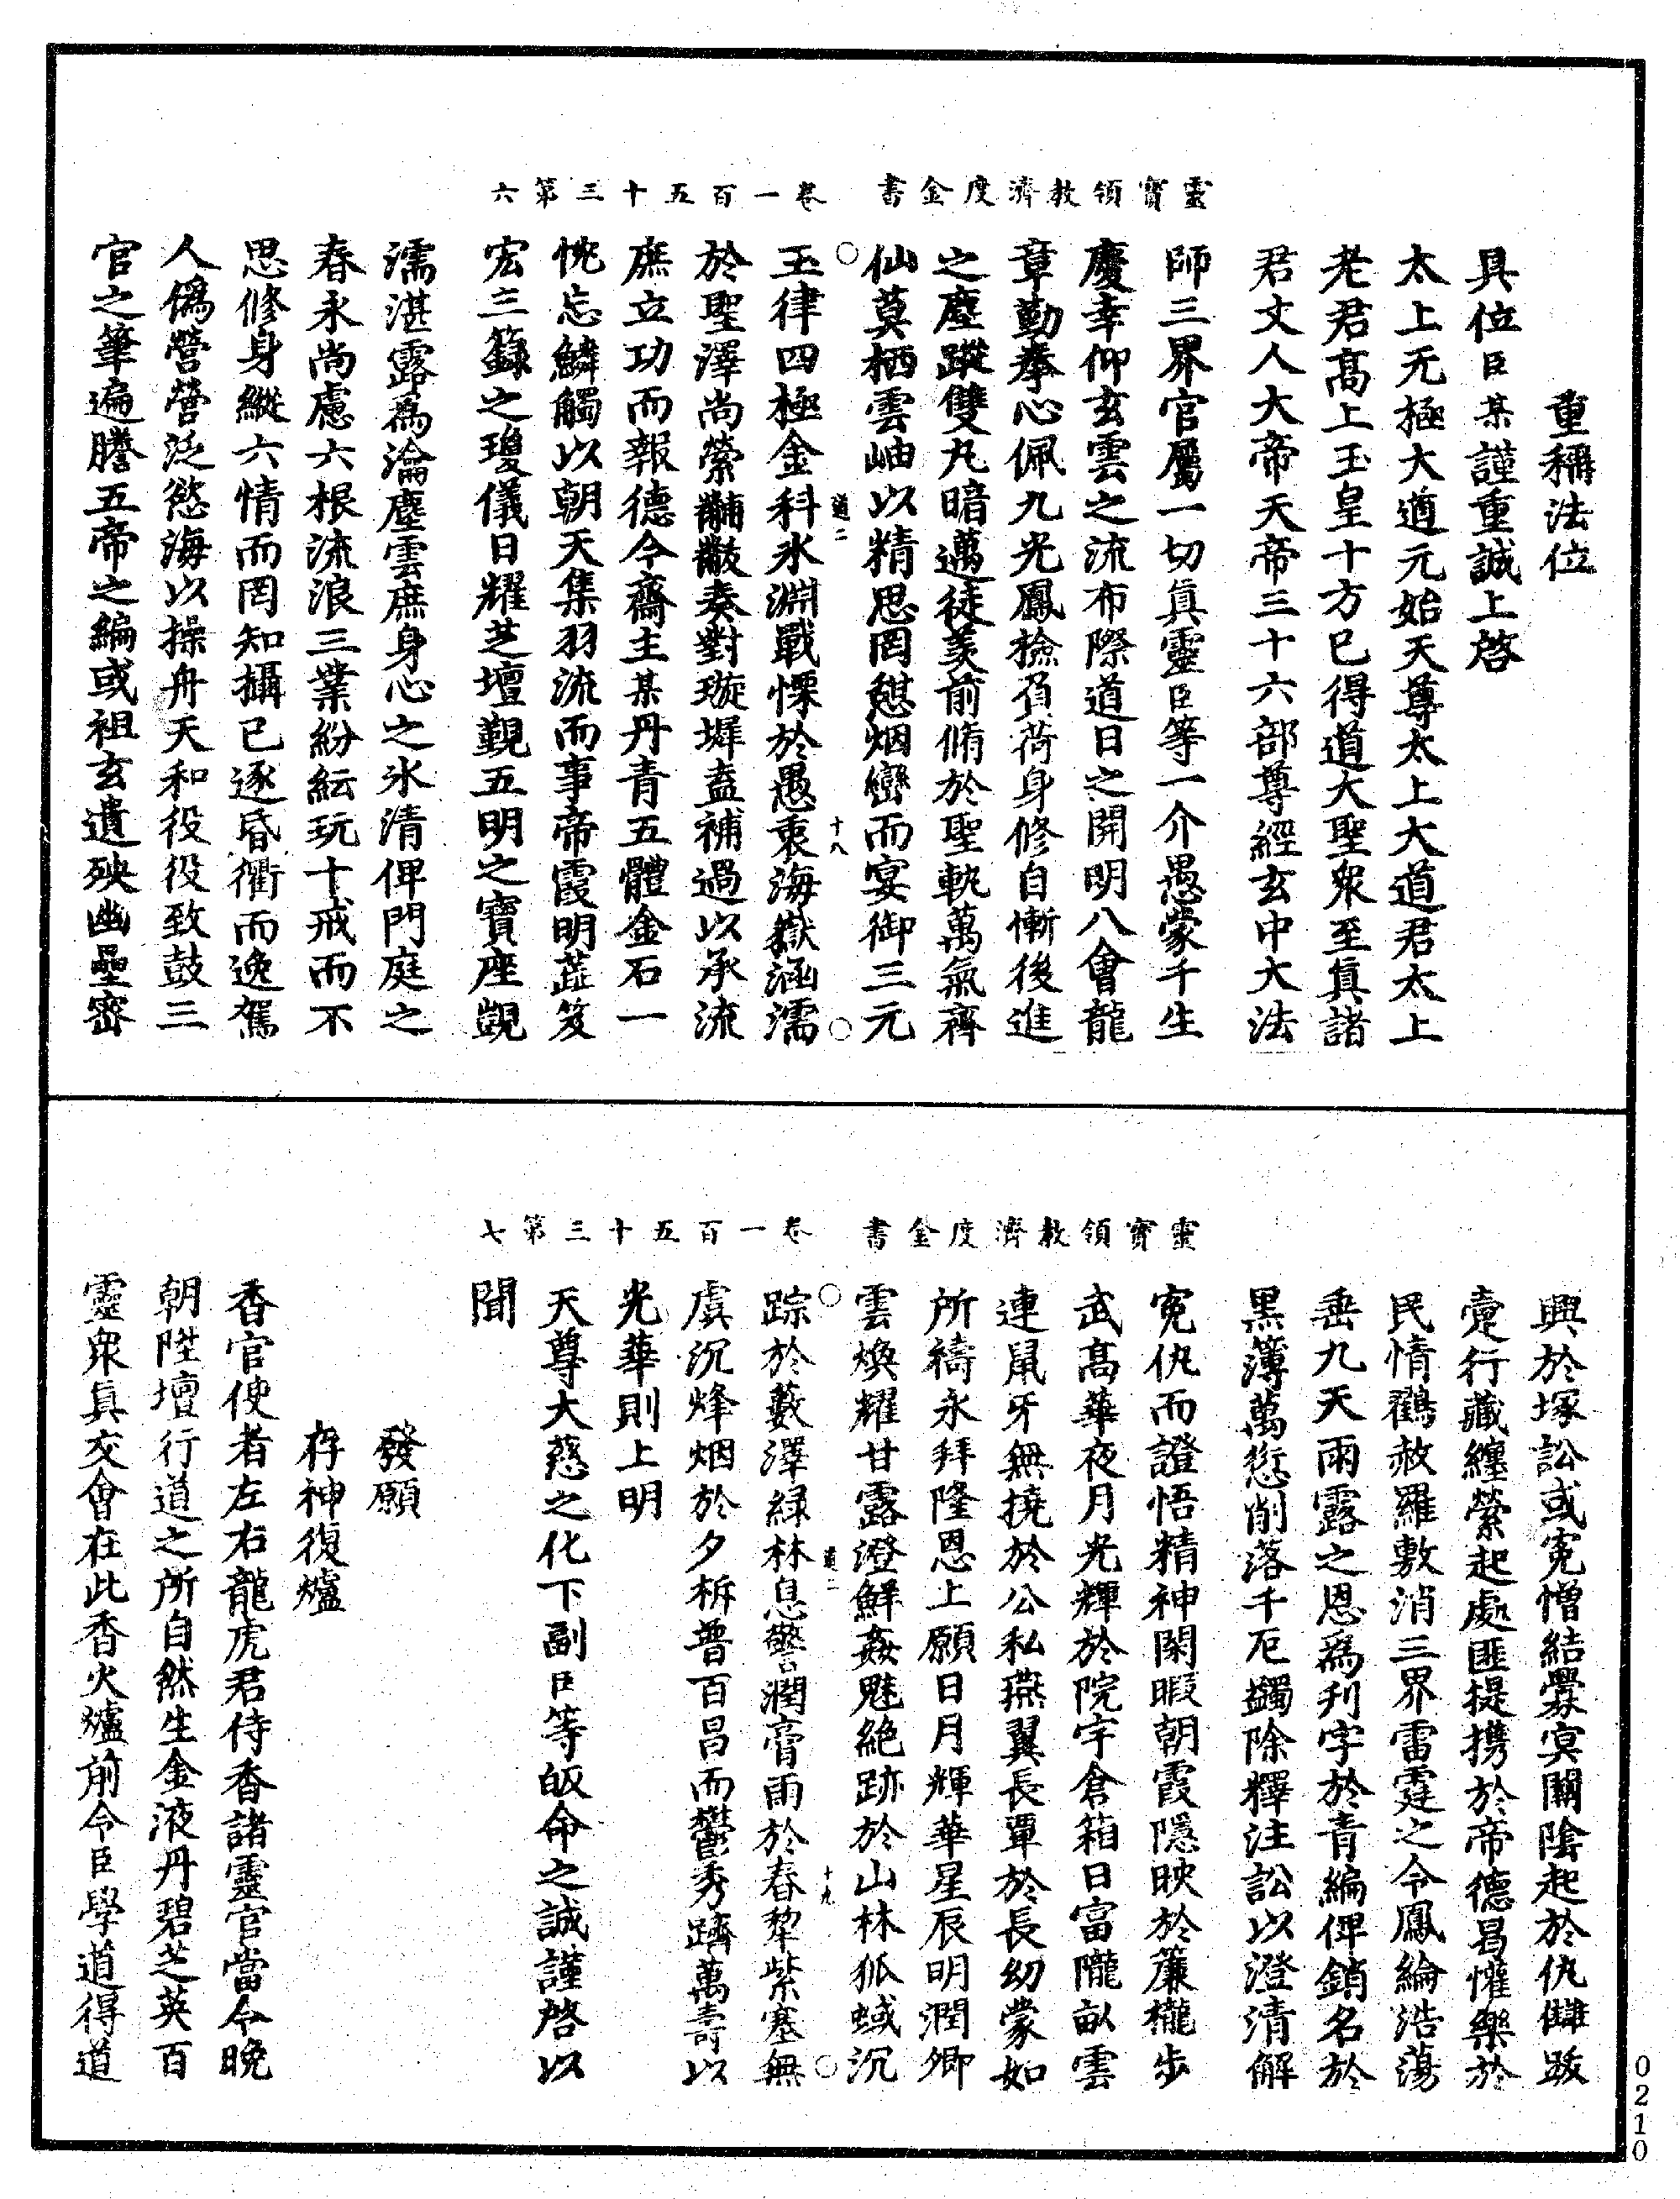 靈寶領教濟度金書　卷一百五十三第六
重稱法位
具位臣某謹重誠上啓
太上无極大道元始天尊太上大道君太上
老君高上玉皇十方已得道大聖衆至眞諸
君丈人大帝天帝三十六部尊經玄中大法
師三界官屬一切眞靈臣等一介愚蒙千生
慶幸仰玄雲之流布際道日之開明八會龍
章勤拳心佩九光鳳撿負荷身修自慚後進
之塵蹤雙丸暗邁徒羨前脩於聖軌萬氣齊
仙莫栖雲岫以精思罔愆烟巒而宴御三元
道二　十八
玉律四極金科氷淵戰慄於愚衷海嶽涵濡
於聖澤尚縈黼黻奏對璇墀盍補過以承流
庶立功而報德今齋主某丹青五體金石一
恍忘鱗觸以朝天集羽流而事帝霞明蕋笈
宏三籙之瓊儀日耀芝壇覲五明之寶座覬
濡湛露爲淪塵雲庶身心之氷清俾門庭之
春永尚慮六根流浪三業紛紜玩十戒而不
思修身縱六情而罔知攝已逐昏衢而逸駕
人僞營營泛慾海以操舟天和役役致鼓三
官之筆遍謄五帝之編或祖玄遺殃幽壘密
靈寶領教濟度金書　卷一百五十三第七
興於塚訟或寃憎結釁㝠關陰起於仇讎跋
疐行藏纏縈起處匪提携於帝德曷懽樂於
民情鸛赦羅敷消三界雷霆之令鳳綸浩蕩
垂九天雨露之恩爲刋字於青編俾銷名於
黑簿萬愆削落千厄蠲除釋注訟以澄清解
寃仇而證悟精神閑暇朝霞隱映於簾櫳步
武高華夜月光輝於院宇倉箱日富隴畝雲
連鼠牙無撓於公私燕翼長覃於長幼蒙如
所禱永拜隆恩上願日月輝華星辰明潤卿
雲煥耀甘露澄鮮姦魁絶跡於山林狐蜮沉
道二　十九
踪於藪澤緑林息警潤膏雨於春犂紫塞無
虞沉烽烟於夕柝普百昌而鬱秀躋萬壽以
光華則上明
天尊大慈之化下副臣等皈命之誠謹啓以
聞
發願
存神復爐
香官使者左右龍虎君侍香諸靈官當令晚
朝陞壇行道之所自然生金液丹碧芝英百
靈衆眞交會在此香火爐前令臣學道得道
0210